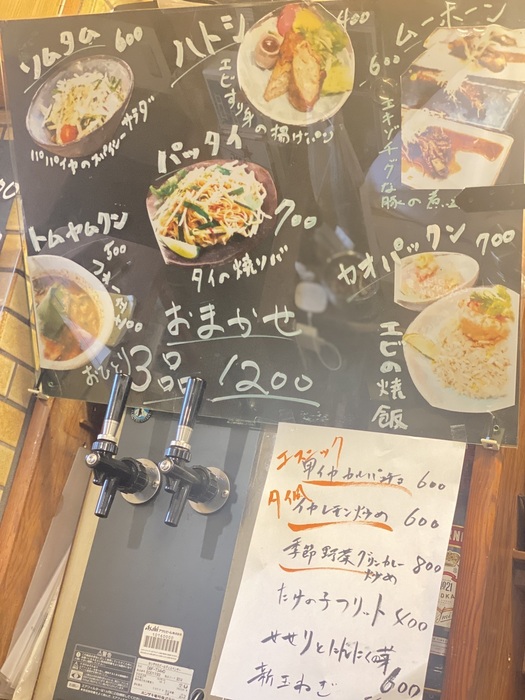 ソムタム 600
パパイヤのスパイシーサラダ
ハトシ 400
エビすり身の揚げパン
ムーホーン
600
エキゾチックな豚の煮込
パッタイ
700
タイの焼りそば
トムヤムクン
500
フォー
カオパックン 700
エビの焼飯
おまかせ
おひとり3品 1200
エスニック
カルパッチョ 600
タイ風
イカレモン炒め 600
季節野菜グリンカレー 800
炒め
たけの子フリット 400
せせりとにんにく芽
新玉ねぎ 600
Asahi